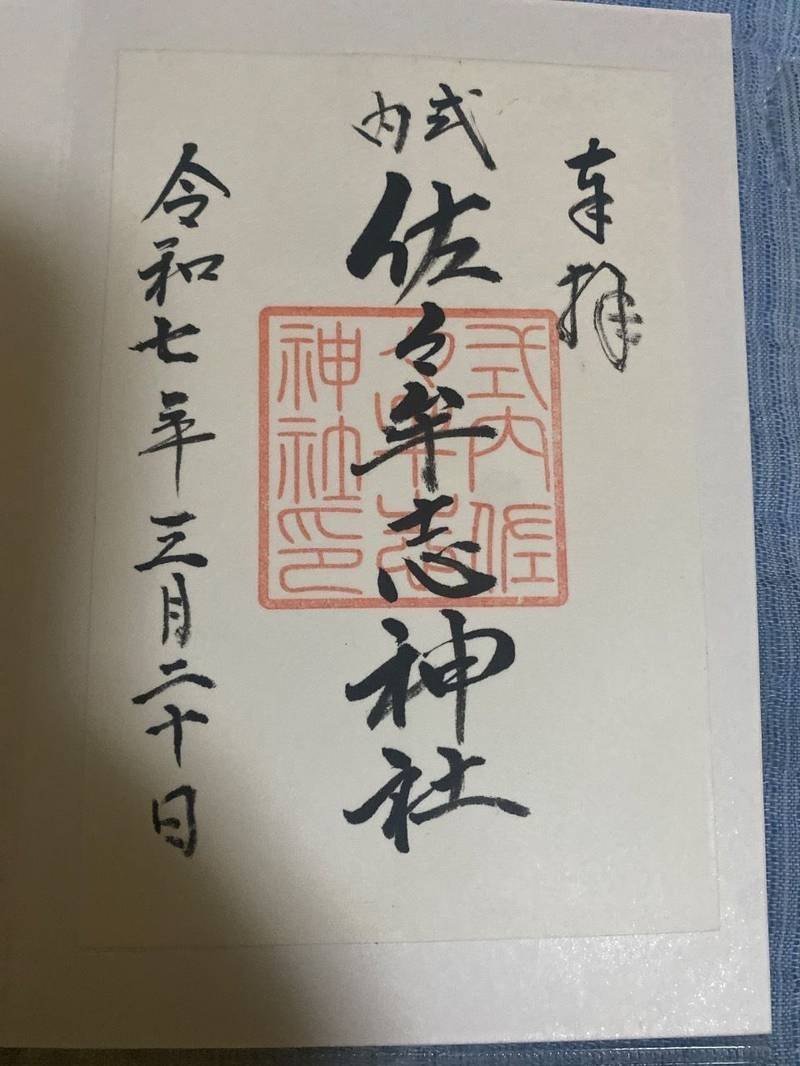 奉拝
式内
佐々牟志神社
式内佐
々牟志
神社印
令和七年三月二十日